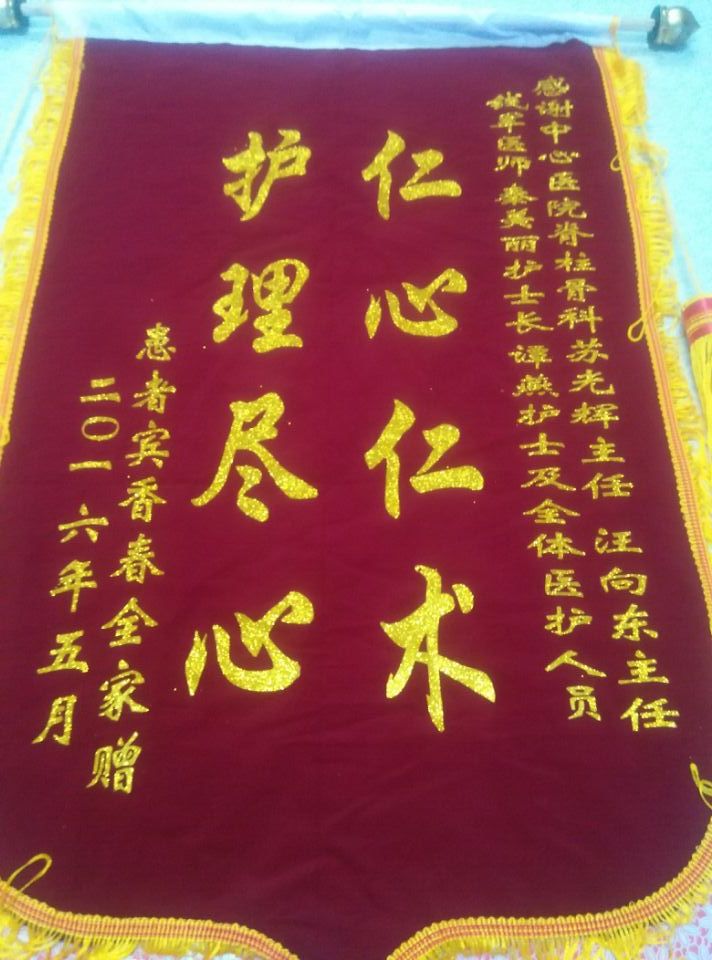 感谢中心医院脊柱骨科苏光辉主任 汪向东主任
钱军医师秦美丽护士长谭燕护士及全体医护人员
仁心仁术
护理尽心
患者宾香春全家赠
二〇一六年五月